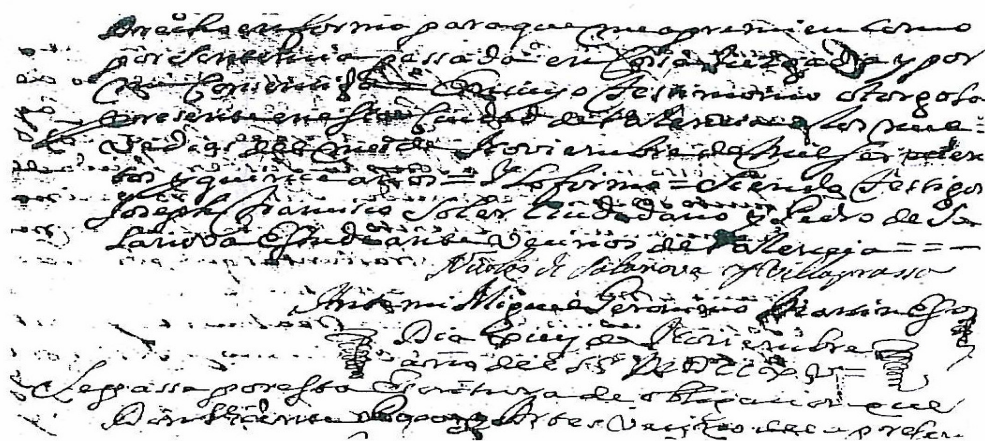 Drecho en forma para que me apremien como
por sentencia passada en Cosa Juzgada y por
mi Consentida = En cuyo testimonio otorgo la
presente en esta Ciudad de Valencia a los nue=
ve dias del mes de Noviembre de mil setecien
tos y quinze años = Y lo firmo = Siendo testigos
Joseph Francisco Soler Ciudadano y Pedro de Sa
lanova Estudiante vecinos de Valencia ==
Nicolas de Salanova y Villagrassa
Ante mi Miguel Geronimo
Dia de Noviembre
año del
Se passe por esta Escritura de obligacion que
vezino de la presen